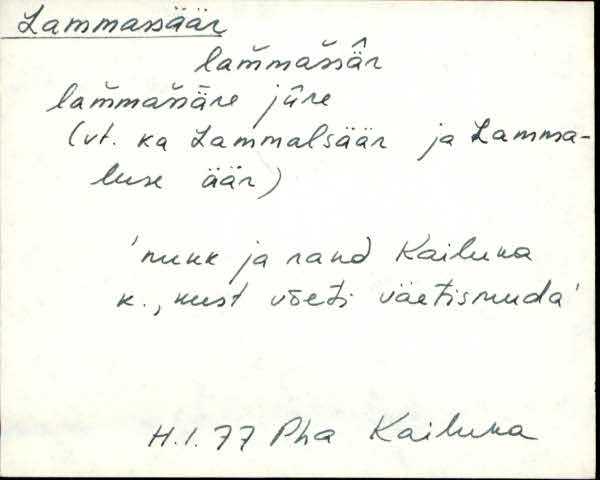 Lammassäär
lam̆mas̆sä̂r
lam̆mas̆sä̆re jûre
(vt. ka Lammalsäär ja Lamma-
luse äär)
'nukk ja rand Kailuka
k., kust võeti väetismuda'
H.I.77 Pha Kailuka